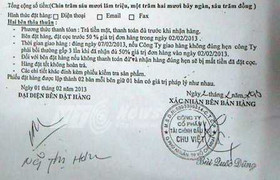 Tổng cộng số tiền: (Chín trăm sáu mươi lăm triệu, một trăm hai mươi bảy ngàn, sáu trăm đồng.)
Hình thức đặt hàng: Điện thoại Email Fax
Hai bên thỏa thuận:
- Phương thức thanh toán: Trả tiền mặt, thanh toán đủ trước khi nhận hàng.
- Bên đặt hàng, đặt cọc trước 50 % giá trị đơn hàng trong ngày 02/02/2013.
- Thời gian giao hàng: đúng ngày 07/02/2013, nếu Công ty giao hàng không đúng hẹn Công ty phải bồi thường gấp 3 lần khi đã nhận đủ 50% giá trị đơn hàng vào ngày 02/02/2013.
- Bên đặt hàng nếu không thanh toán và nhận hàng đúng hẹn sẽ bị mất tiền đã đặt cọc.
- Hàng đặt rồi không hoàn trả.
- Các điều khoản khác đính kèm phiếu kiểm tra sản phẩm.
Phiếu đặt hàng được lập thành 02 bản mỗi bên giữ 01 bản có giá trị pháp lý như nhau.
Ngày 01 tháng 02 năm 2013
ĐẠI DIỆN BÊN ĐẶT HÀNG
XÁC NHẬN BÊN BÁN HÀNG
CÔNG TY
CHU VIỆT
Bùi Quốc Dũng